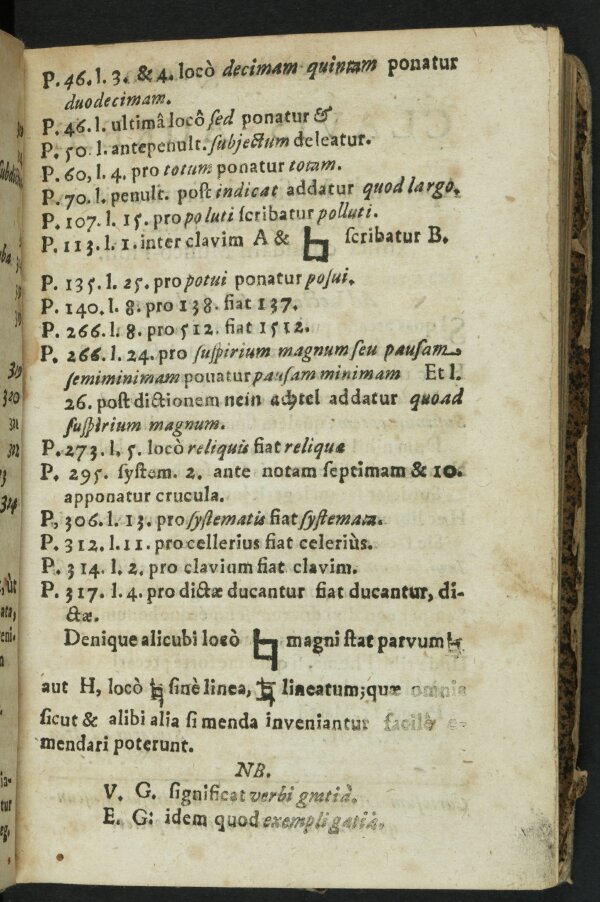 P. 46. l. 3. & 4. locò decimam quintam ponatur
duodecimam.
P. 46. l. ultimâ locô sed ponatur &
P. 50. l. antepenult. subjectum deleatur.
P. 60, l. 4. pro totum ponatur totam.
P. 70. l. penult. post indicat addatur quod largo.
P. 107. l. 15. pro poluti scribatur polluti.
P. 113. l. 1. inter clavim A & ♮ scribatur B.
P. 135. l. 25. pro potui ponatur posui.
P. 140. l. 8. pro 138. fiat 137.
P. 266. l. 8. pro 512. fiat 1512.
P. 266. l. 24. pro suspirium magnum seu pausam
semiminimam ponatur pausam minimam Et l.
26. post dictionem nein achtel addatur quoad
suspirium magnum.
P. 273. l. 5. locò reliquis fiat reliquæ
P. 295. system. 2. ante notam septimam & 10.
apponatur crucula.
P, 306. l. 13. pro systematis fiat systemata.
P. 312. l. 11. pro cellerius fiat celeriùs.
P. 314. l. 2. pro clavium fiat clavim.
P. 317. l. 4. pro dictæ ducantur fiat ducantur, di-
ctæ.
Denique alicubi locò ♮ magni stat parvum ♮
aut H, locò ♮ sinè linea, ♮ lineatum; quæ omnia
sicut & alibi alia si menda inveniantur facilè e-
mendari poterunt.
NB.
V. G. significat verbi gratiâ.
E. G: idem quod exempli gatiâ.
319
320
321
322
324